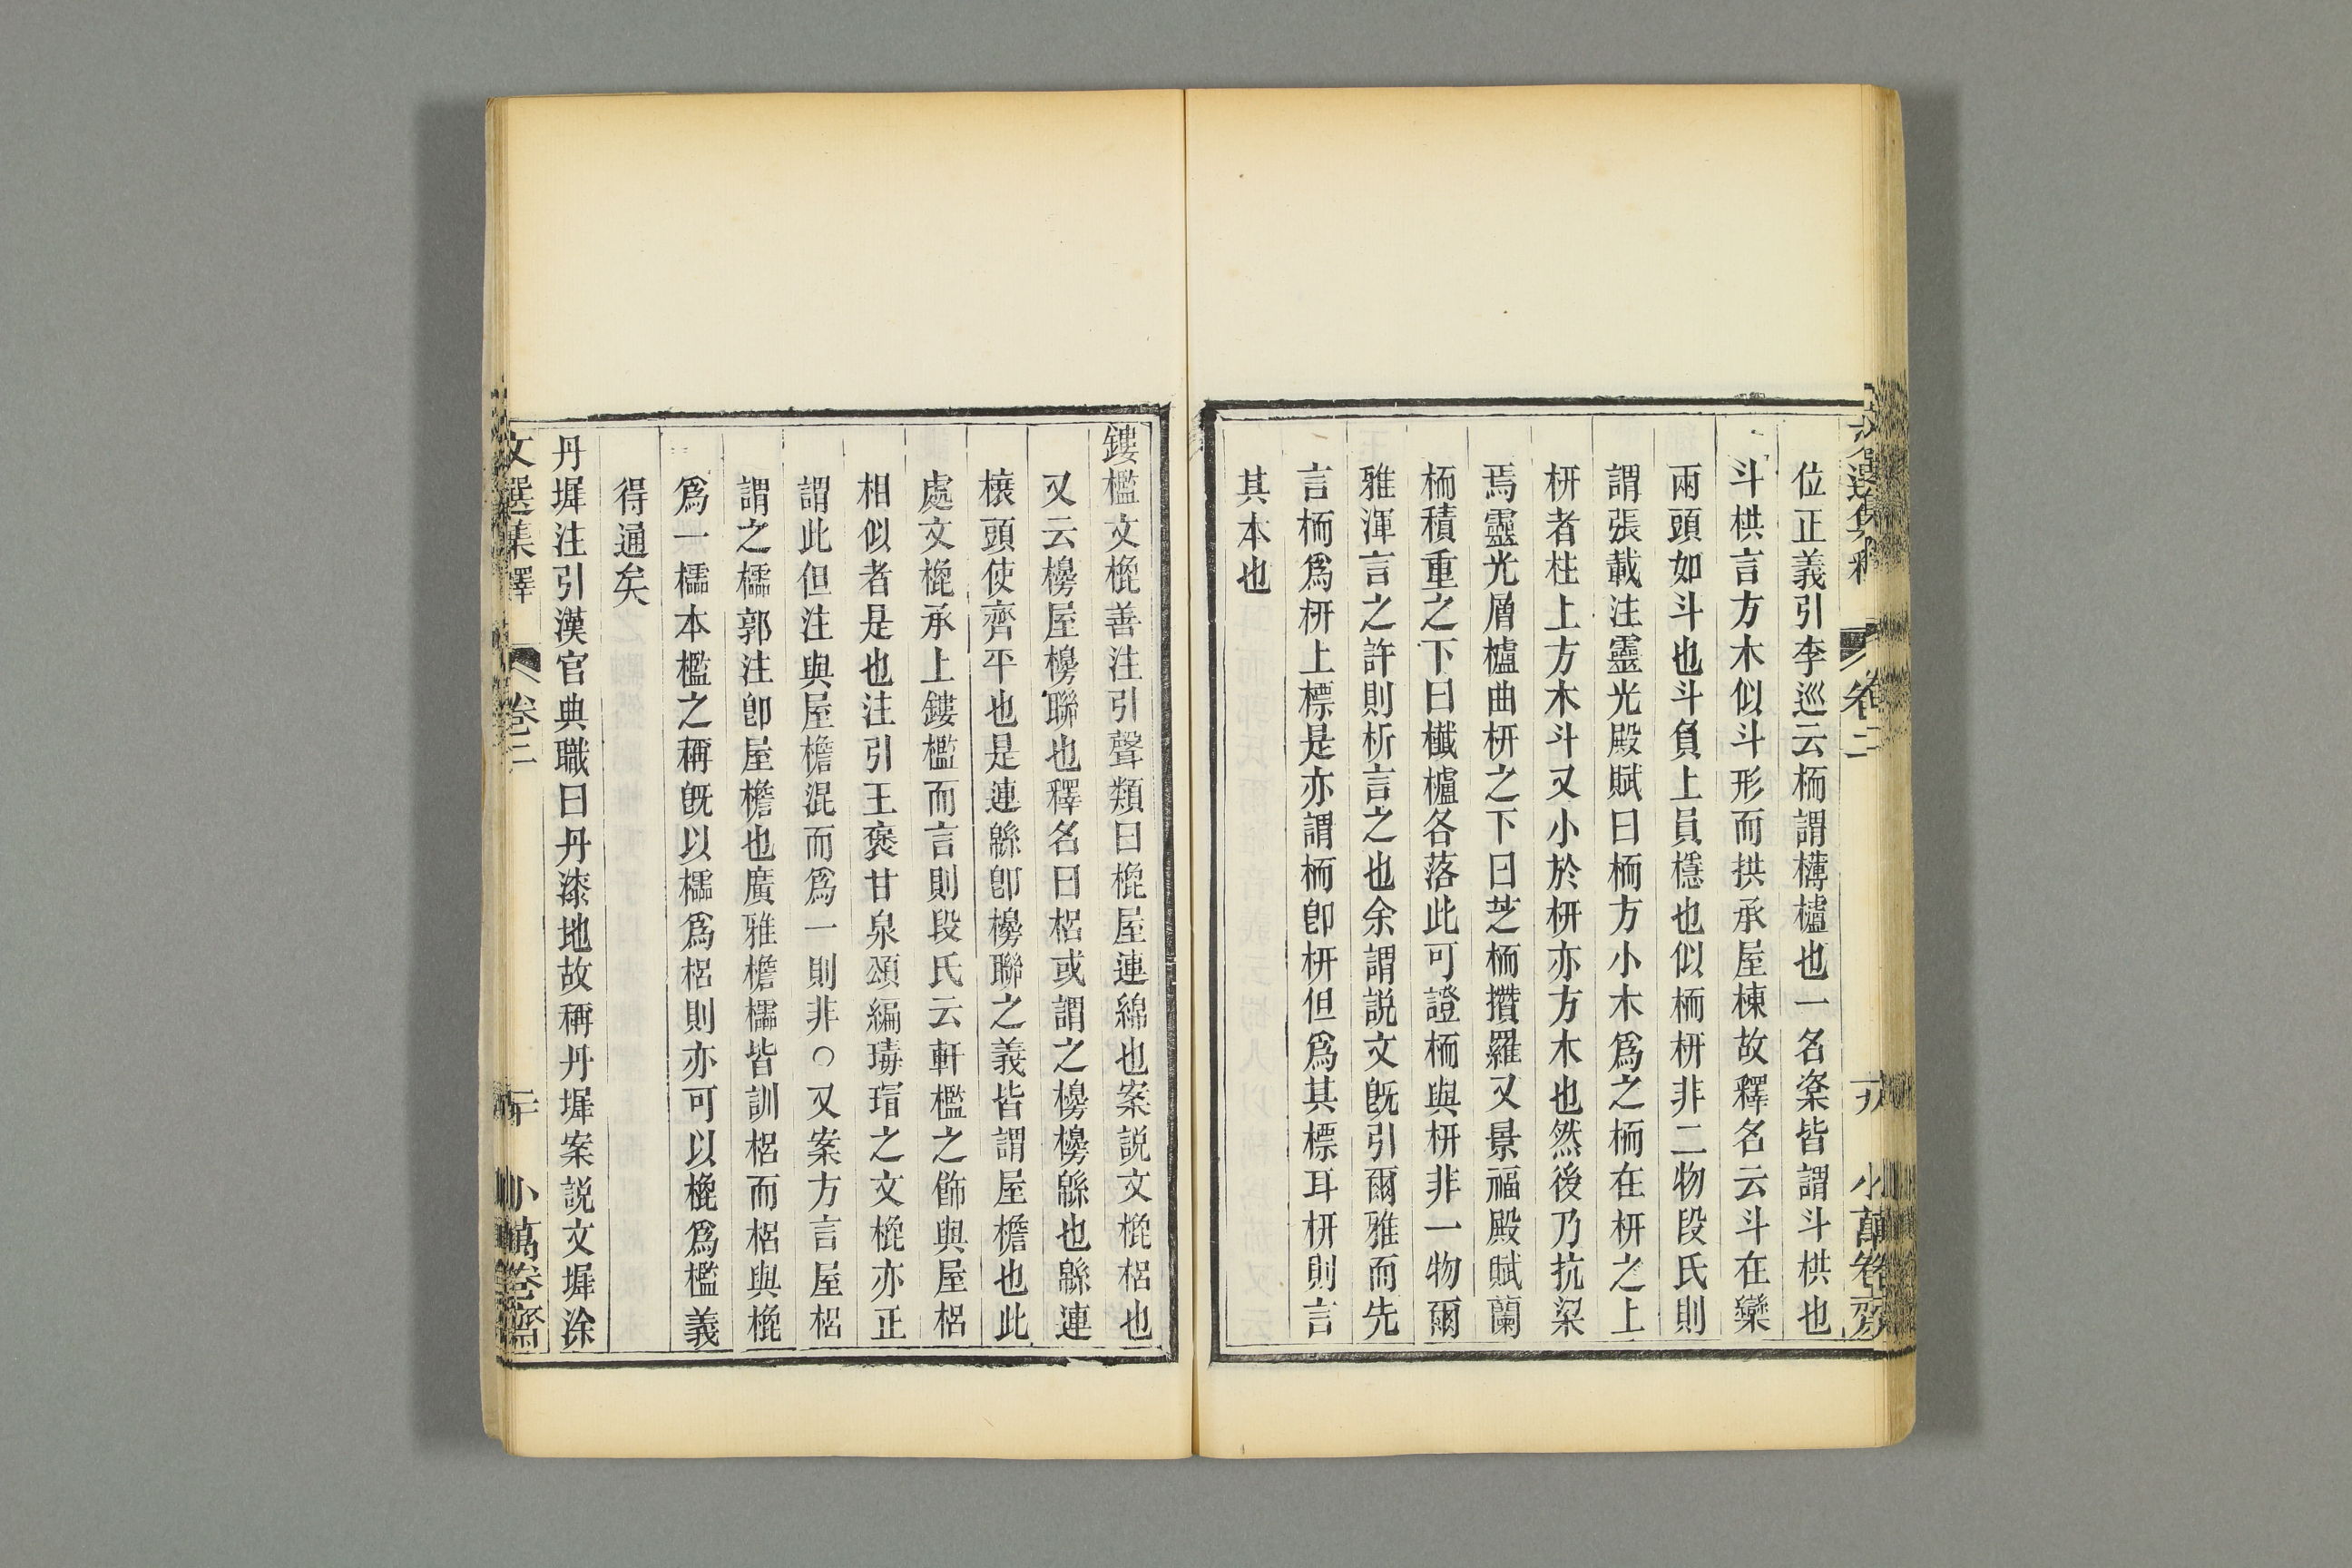 文選集釋 卷二 小萬卷齋
位正義引李巡云栭謂欂櫨也一名楶皆謂斗栱也
斗栱言方木似斗形而拱承屋棟故釋名云斗在欒
兩頭如斗也斗負上員穩也似栭枅非二物段氏則
謂張載注靈光殿賦曰栭方小木爲之栭在枅之上
枅者柱上方木斗又小於枅亦方木也然後乃抗梁
焉靈光層櫨曲枅之下曰芝栭攢羅又景福殿賦蘭
栭積重之下曰櫼櫨各落此可證栭與枅非一物爾
雅渾言之許則析言之也余謂説文既引爾雅而先
言栭爲枅上標是亦謂栭卽枅但爲其標耳枅則言
其本也
鏤檻文㮰善注引聲類曰㮰屋連綿也案説文㮰梠也
又云櫋屋櫋聯也釋名曰梠或謂之櫋櫋緜也緜連
榱頭使齊平也是連緜卽櫋聯之義皆謂屋檐也此
處文㮰承上鏤檻而言則段氏云軒檻之飾與屋梠
相似者是也注引王褒甘泉頌編瑇瑁之文㮰亦正
謂此但注與屋檐混而爲一則非○又案方言屋梠
謂之檽郭注卽屋檐也廣雅檐檽皆訓梠而梠與㮰
爲一檽本檻之稱既以檽爲梠則亦可以㮰爲檻義
得通矣
丹墀注引漢官典職曰丹漆地故稱丹墀案説文墀涂
文選集釋 卷二 二十 小萬卷齋